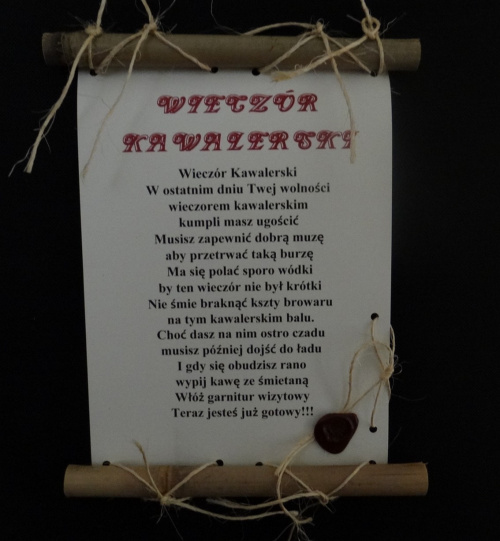 WIECZÓR
KAWALERSKI
Wieczór Kawalerski
W ostatnim dniu Twej wolności
wieczorem kawalerskim
kumpli masz ugościć
Musisz zapewnić dobrą muzę
aby przetrwać taką burzę
Ma się polać sporo wódki
by ten wieczór nie był krótki
Nie śmie braknąć kszty browaru
na tym kawalerskim balu.
Choć dasz na nim ostro czadu
musisz później dojść do ładu
I gdy się obudzisz rano
wypij kawę ze śmietaną
Włóż garnitur wizytowy
Teraz jesteś już gotowy!!!